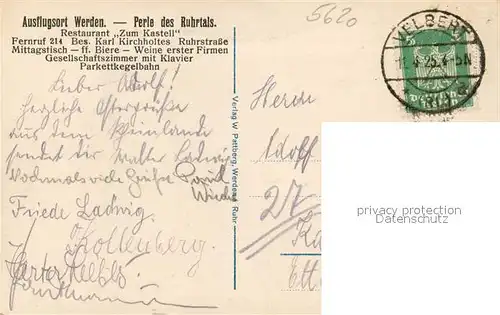 Ausflugsort Werden. — Perle des Ruhrtals.
Restaurant „Zum Kastell"
Fernruf 214 Bes. Karl Kirchholtes Ruhrstraße
Mittagstisch — ff. Biere — Weine erster Firmen
Gesellschaftszimmer mit Klavier
Parkettkegelbahn
5620
VELBERT
Lieber Adolf!
herzliche Ostergrüße
aus dem Rheinlande
sendet dir Walter Ladwig
Nochmals viele Grüße Paul
Friede Ladwig.
Kollenberg.
Verlag W. Pattberg, Werden a. Ruhr
Herrn
Adolf
27
privacy protection
datenschutz